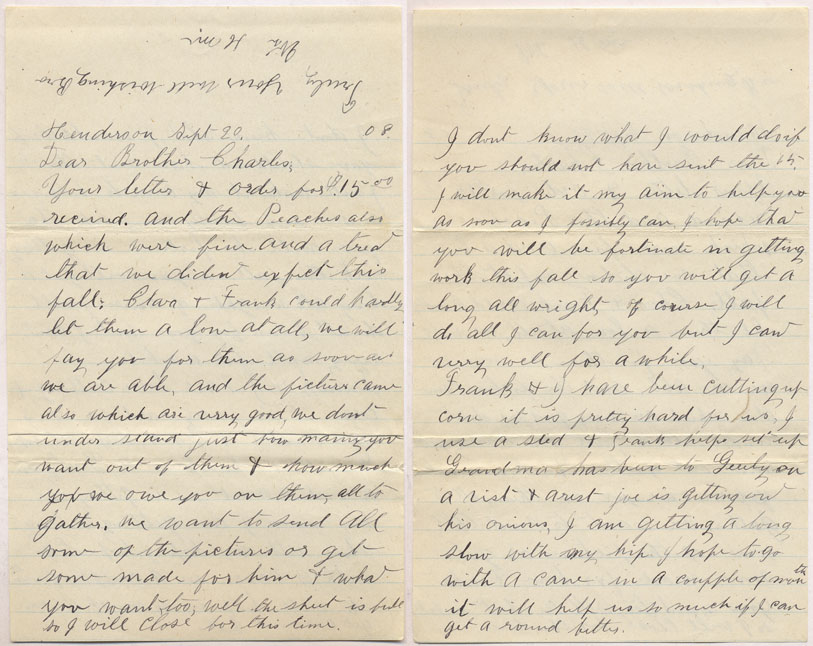 Henderson Sept 20. 08.
Dear Brother Charles;
Your letter & order for $15 00
recived. and the Peaches also
which were fine and a tred
that we diden expect this
fall; Clara & Frank could hardly
let them a lone at all, we will
pay you for them as soon as
we are able, and the picturs came
also which are verry good, we dont
under stand just how many you
want out of them & how much
you we owe you on them, all to
gather. we want to send All
some of the pictures or get
some made for him & what
you want too; well the sheet is full
so I will close for this time.
Truly Yours Well Wishing Bro
Wm
I dont know what I would do if
you should not have sent the 15.
I will make it my aim to help you
as soon as I possibly can, I hope that
you will be fortinate in getting
work this fall so you will get a
long all wright, of course I will
do all I can for you but I cant
verry well for a while.
Frank & I have been cutting up
corn it is pretty hard for us, I
use a sled & Frank helps set up
Grandma has been to on
a vist & arest joe is getting out
his onions, I am getting a long
slow with my hip I hope to go
with a cane in a coupple of month
it will help us so much if I can
get a round better.